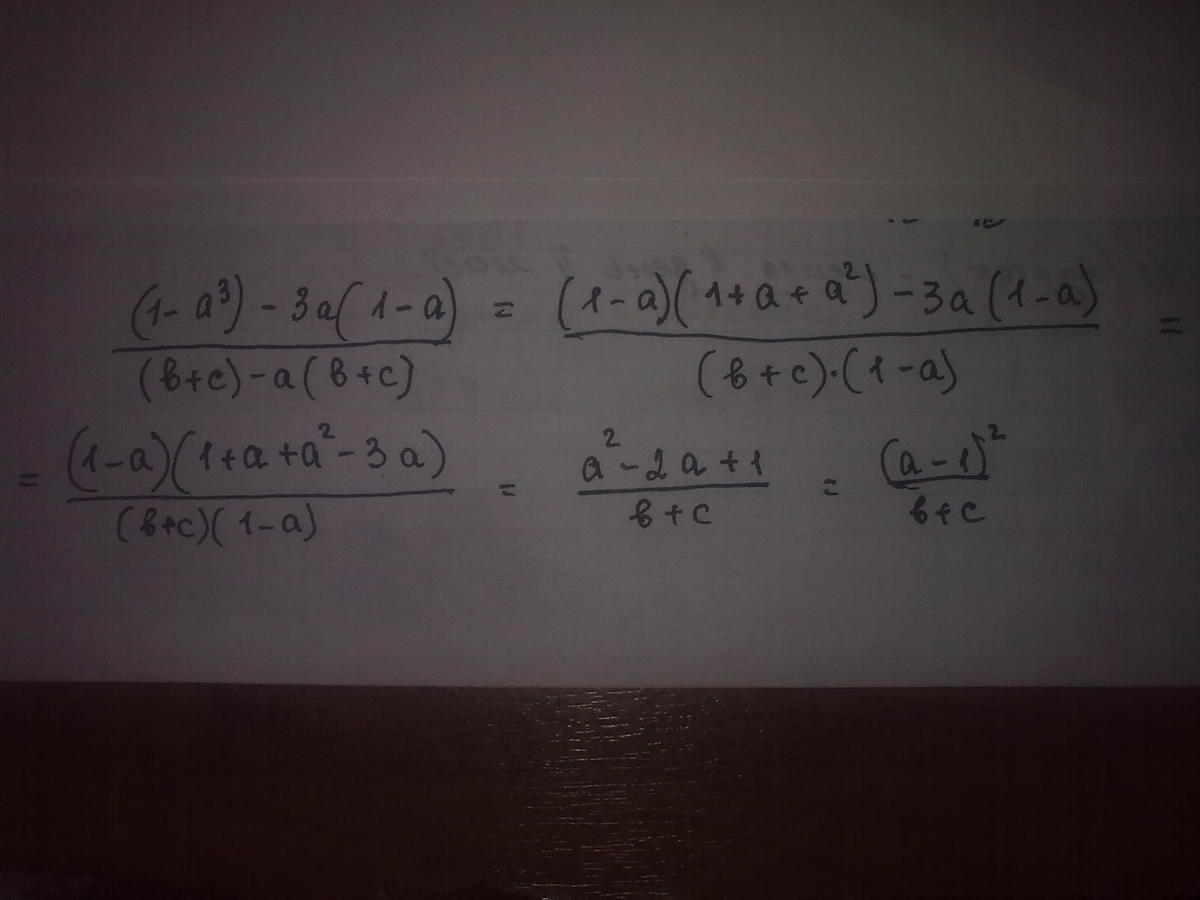 (1-a³)-3a(1-a) / (в+c)-a(в+c) = (1-a)(1+a+a²)-3a(1-a) / (в+c)·(1-a) =
= (1-a)(1+a+a²-3a) / (в+c)(1-a) = a²-2a+1 / в+c = (a-1)² / в+c